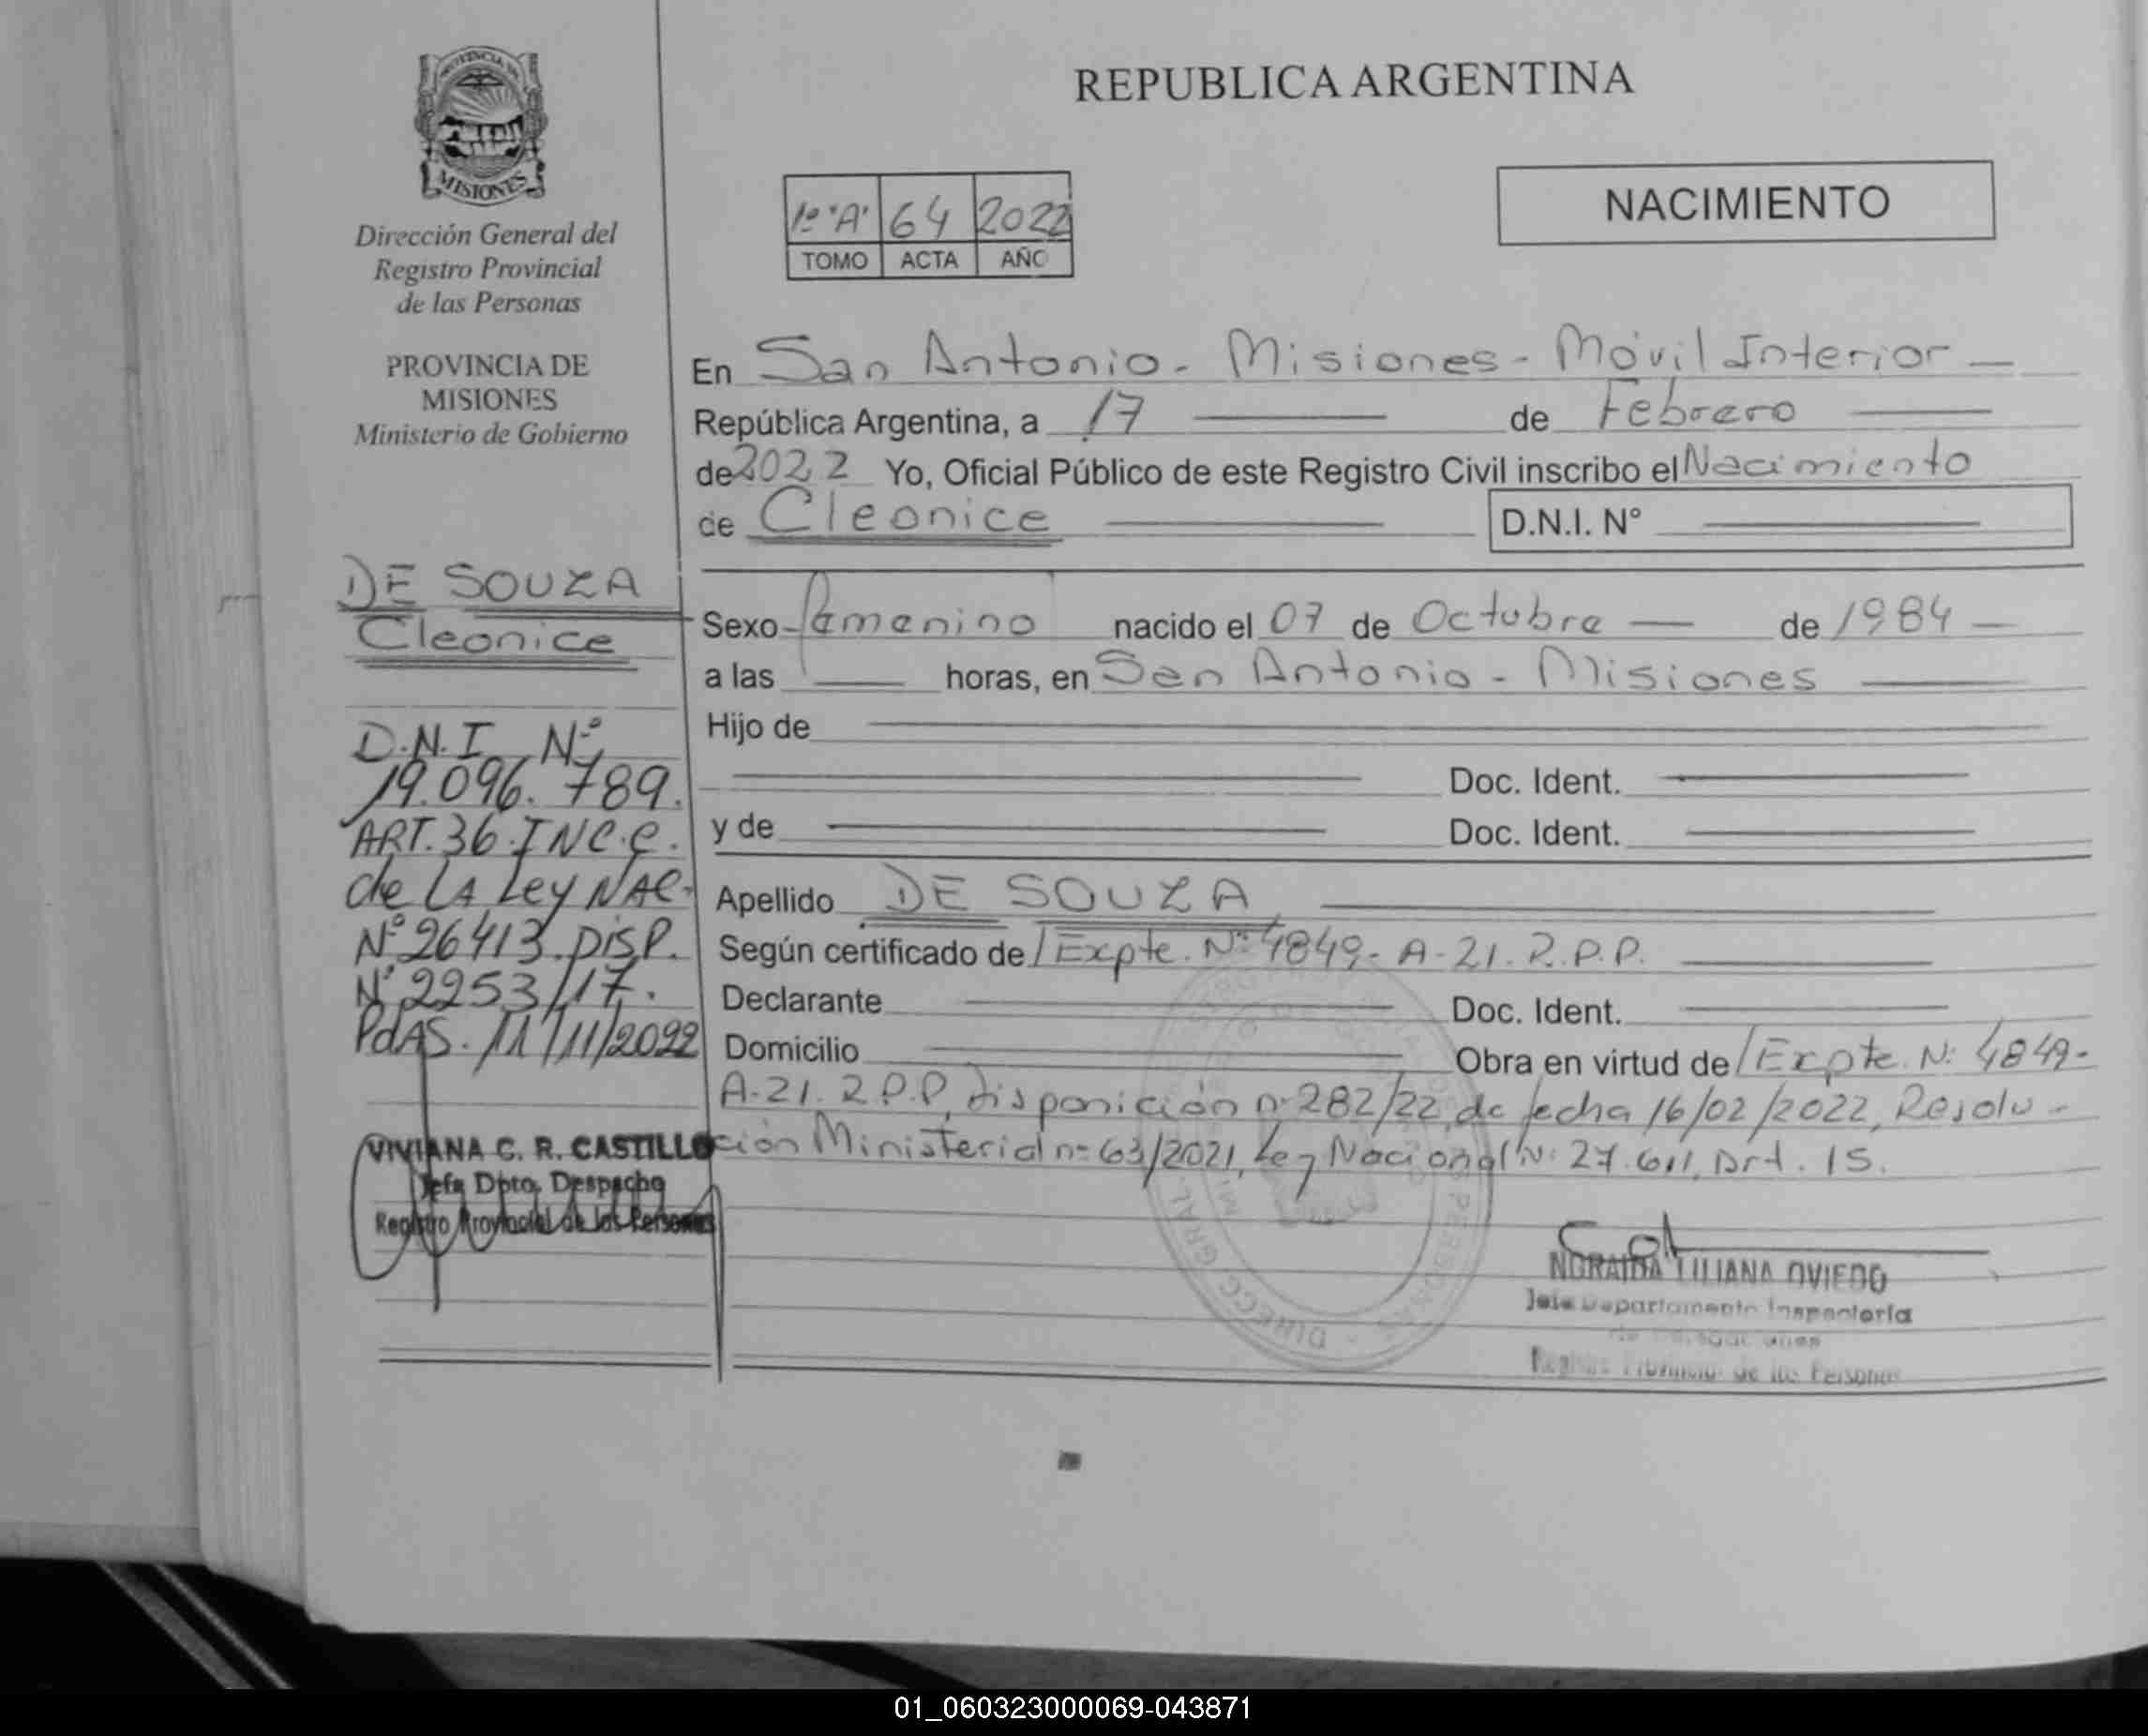 PROVINCIA DE
MISIONES
Dirección General del
Registro Provincial
de las Personas
PROVINCIA DE
MISIONES
Ministerio de Gobierno
DE SOUZA
Cleonice
D.N.I Nº
19.096.789.
ART.36.INC.C.
de LA Ley NAC.
Nº 26413.DISP.
Nº 2253/17.
PdAS. 11/11/2022
VIVIANA C. R. CASTILLO
Jefa Dpto. Despacho
Registro Provincial de las Personas
REPUBLICA ARGENTINA
1º "A" 64 2022
TOMO ACTA AÑO
NACIMIENTO
En San Antonio - Misiones - Móvil Interior
República Argentina, a 17 de Febrero
de 2022 Yo, Oficial Público de este Registro Civil inscribo el Nacimiento
de Cleonice D.N.I. N°
Sexo femenino nacido el 07 de Octubre de 1984
a las horas, en San Antonio - Misiones
Hijo de
Doc. Ident.
y de Doc. Ident.
Apellido DE SOUZA
Según certificado de Expte. Nº 4849- A-21. R.P.P.
Declarante Doc. Ident.
Domicilio Obra en virtud de Expte. Nº 4849-
A-21. R.P.P, disposición nº 282/22, de fecha 16/02/2022, Resolu-
ción Ministerial nº 63/2021, Ley Nacional Nº 27.611, Art. 15.
NORAIDA LILIANA OVIEDO
Jefe Departamento Inspectoría
Registro Provincial de las Personas
01_060323000069-043871